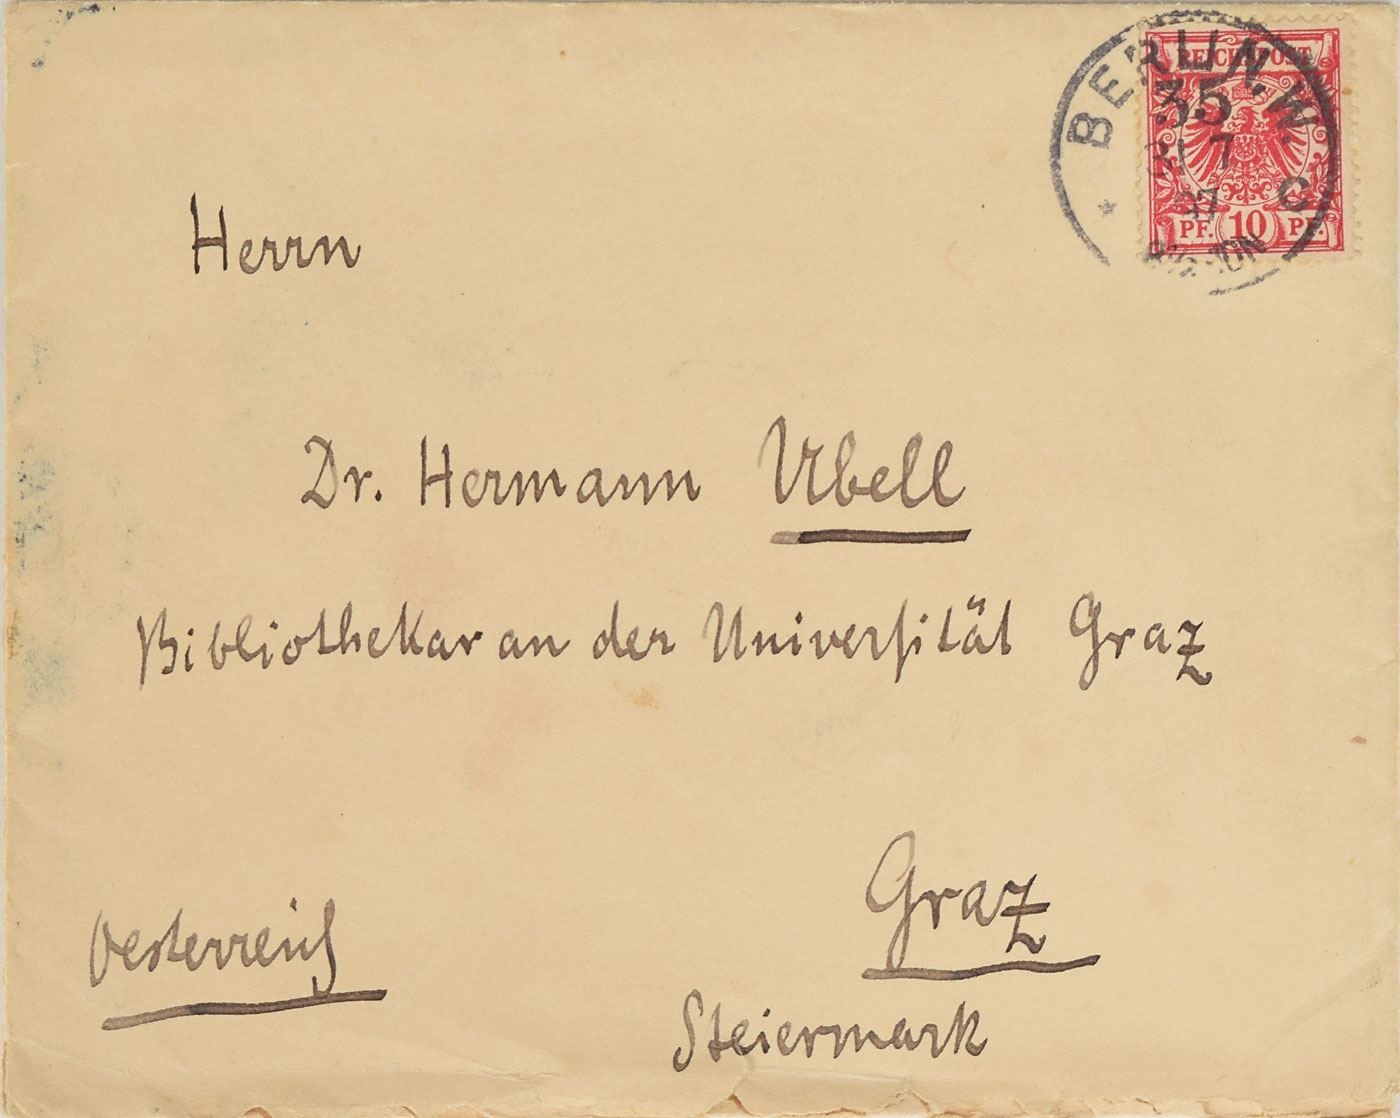 BERLIN.W.
35
REICHSPOST
7
97
C
PF. 10 PF.
Herrn
Dr. Hermann Ubell
Bibliothekar an der Universität Graz
Graz
Oesterreich
Steiermark